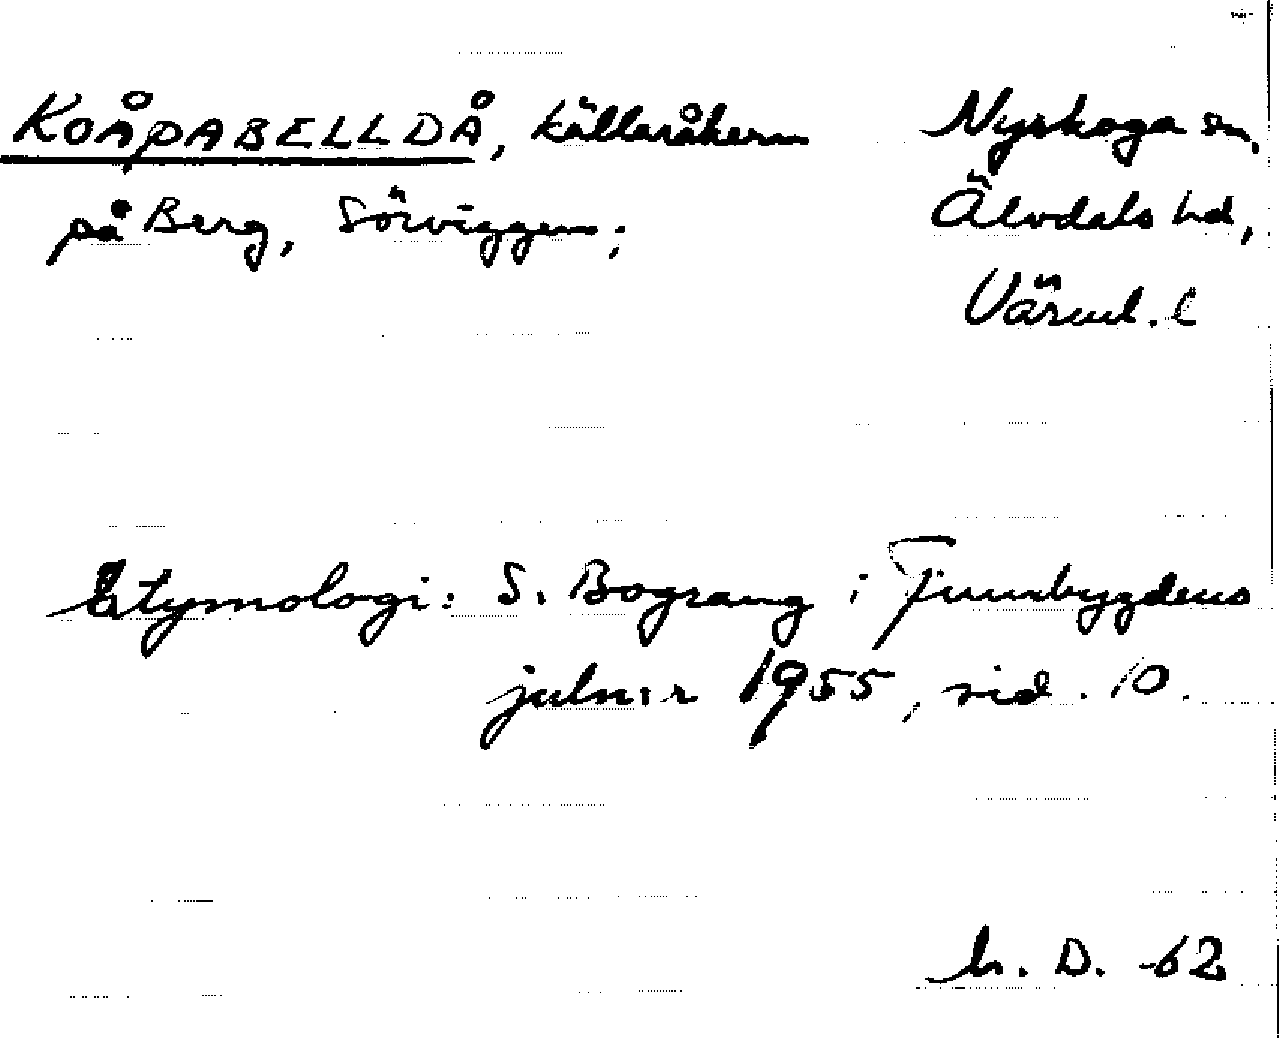 KOÅPABELLDÅ, källaråkern
på Berg, Sörviggen;
Nyskoga sn,
Älvdals hd,
Värml. l
Etymologi: S. Bograng i Finnbygdens
julnr 1955, sid. 10.
h. D. -62